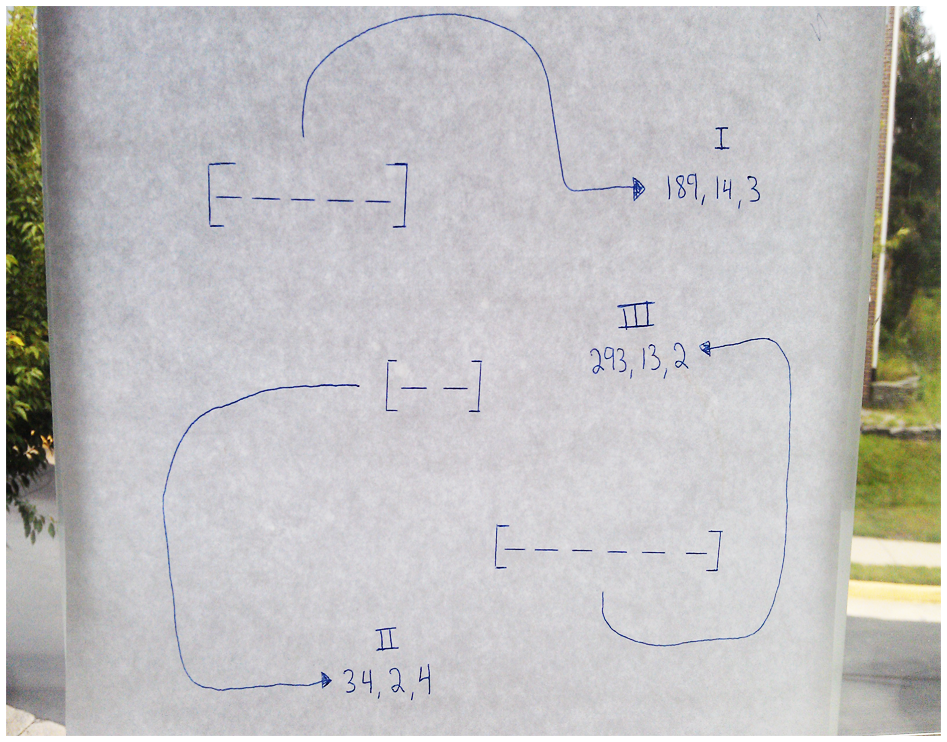 I
189, 14, 3
[_ _ _ _ _]
III
293, 13, 2
[_ _]
[_ _ _ _ _ _]
II
34, 2, 4